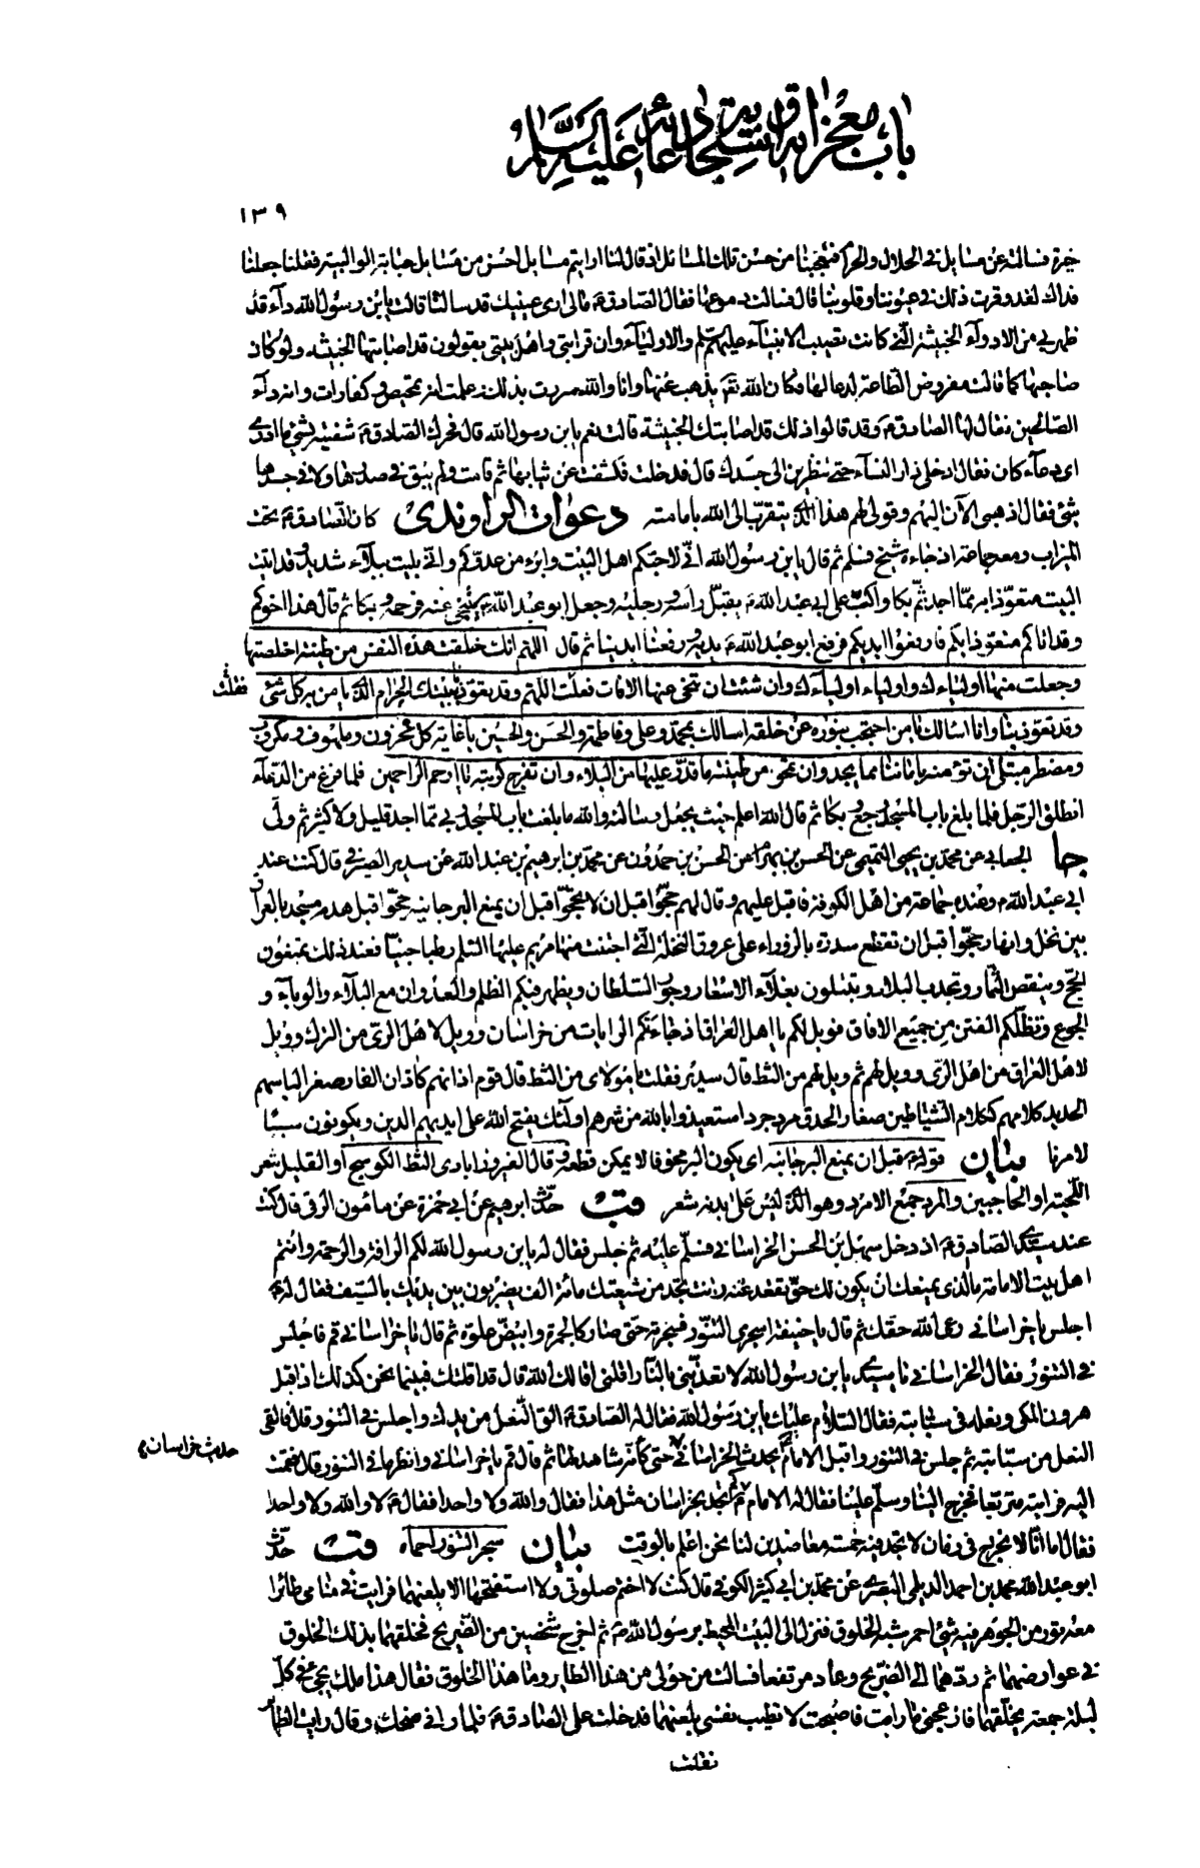 باب معجزاته واستجابة دعائه عليه السلام
١٣٩
خيرة فسالته عن مسايل في الحلال والحرام فتعجبنا من حسن تلك المسائل اذ قال لنا ارايتم مسايل احسن من مسايل حبابة الوالبية فقلنا جعلنا
فداك لقد وقرت ذلك في عيوننا وقلوبنا قال فسالت دموعها فقال الصادق ع مالى ارى عينيك قد سالتا قالت يا بن رسول الله داء قد
ظهر بي من الادواء الخبيثة التي كانت تصيب الانبياء عليهم السلم والاولياء وان قرابتي واهل بيتي يقولون قد اصابتها الخبيثة ولو كان
صاحبها كما قالت مفروض الطاعة لدعا لها فكان الله تع يذهب عنها وانا والله سررت بذلك وعلمت انه تمحيص وكفارات وانه داء
الصالحين فقال لها الصادق ع وقد قالوا ذلك قد اصابتك الخبيثة قالت نعم يا بن رسول الله قال فحرك الصادق ع شفتيه بشئ ما ادرى
اى دعاء كان فقال ادخلى دار النساء حتى تنظرين الى جسدك قال فدخلت فكشفت عن ثيابها ثم قامت ولم يبق في صدرها ولا في جسدها
شئ فقال اذهبى الآن اليهم وقولى لهم هذا الذى يتقرب الى الله بامامته دعوات الراوندى كان الصادق ع تحت
الميزاب ومعه جماعة اذ جاءه شيخ فسلم ثم قال يا بن رسول الله انى لاحبكم اهل البيت وابرء من عدوكم وانى بليت ببلاء شديد وقد اتيت
البيت متعوذا به مما اجد ثم بكا واكب على ابى عبد الله ع يقبل راسه ورجليه وجعل ابو عبد الله ع يتنحى عنه فرحمه وبكا ثم قال هذا اخوكم
وقد اتاكم متعوذا بكم فارفعوا ايديكم فرفع ابو عبد الله ع يديه ورفعنا ايدينا ثم قال اللهم انك خلقت هذه النفس من طينة اخلصتها
وجعلت منها اولياءك واولياء اوليائك وان شئت ان تنحى عنها الافات فعلت اللهم وقد تعوذ ببيتك الحرام الذى يامن به كل شئ
فعلت
وقد تعوذ بنا وانا اسالك يا من احتجب بنوره عن خلقه اسالك بمحمد وعلى وفاطمة والحسن والحسين يا غاية كل محزون وملهوف ومكروب
ومضطر مبتلى ان تؤمنه باماننا مما يجد وان تمحو من طينته ما قدر عليها من البلاء وان تفرج كربته يا ارحم الراحمين فلما فرغ من الدعاء
انطلق الرجل فلما بلغ باب المسجد رجع وبكا ثم قال الله اعلم حيث يجعل رسالته والله ما بلغت باب المسجد وبى مما اجد قليل ولا كثير ثم ولى
جا الجعابى عن محمد بن يحيى التميمى عن الحسن بن بهرام عن الحسن بن حمدون عن محمد بن ابرهيم بن عبد الله عن سدير الصيرفى قال كنت عند
ابى عبد الله ع وعنده جماعة من اهل الكوفة فاقبل عليهم وقال لهم حجوا قبل ان لا تحجوا قبل ان يمنع البر جانبه حجوا قبل هدم مسجد بالعراق
بين نخل وانهار حجوا قبل ان تقطع سدرة بالزوراء على عروق النخلة التى اجتنت منها مريم عليها السلم رطبا جنيا فعند ذلك تمنعون
الحج وينقص الثمار وتجدب البلاد وتبتلون بغلاء الاسعار وجور السلطان ويظهر فيكم الظلم والعدوان مع البلاء والوباء و
الجوع وتظلكم الفتن من جميع الافاق فويل لكم يا اهل العراق اذا جاءتكم الرايات من خراسان وويل لاهل الرى من الترك وويل
لاهل العراق من اهل الرى وويل لهم ثم ويل لهم من الثط قال سدير فقلت يا مولاى من الثط قال قوم اذانهم كاذان الفار صغرا لباسهم
الحديد كلامهم ككلام الشياطين صغار الحدق مرد جرد استعيذوا بالله من شرهم اولئك يفتح الله على ايديهم الدين ويكونون سببا
لامرنا بيان قوله ع قبل ان يمنع البر جانبه اى يكون البر مخوفا لا يمكن قطعه وقال الفيروزابادى الثط الكوسج او القليل شعر
اللحية او الحاجبين والمرد جمع الامرد وهو الذى ليس على بدنه شعر قب حدث ابرهيم عن ابى حمزة عن مامون الرقى قال كنت
عند سيدى الصادق ع اذ دخل سهل بن الحسن الخراسانى فسلم عليه ثم جلس فقال له يا بن رسول الله لكم الرافة والرحمة وانتم
اهل بيت الامامة ما الذى يمنعك ان يكون لك حق تقعد عنه وانت تجد من شيعتك مائة الف يضربون بين يديك بالسيف فقال له ع
اجلس يا خراسانى رعى الله حقك ثم قال يا حنيفة اسجرى التنور فسجرته حتى صار كالجمرة وابيض علوه ثم قال يا خراسانى قم فاجلس
في التنور فقال الخراسانى يا سيدى يا بن رسول الله لا تعذبنى بالنار اقلنى اقالك الله قال قد اقلتك فبينما نحن كذلك اذ اقبل
هرون المكى ونعله في سبابته فقال السلام عليك يا بن رسول الله فقال له الصادق ع الق النعل من يدك واجلس في التنور قال فالقى
النعل من سبابته ثم جلس في التنور واقبل الامام ع يحدث الخراسانى حديث خراسان حتى كانه شاهد لها ثم قال قم يا خراسانى وانظر ما في التنور قال فقمت
حديث خراسان
اليه فرايته متربعا فخرج الينا وسلم علينا فقال له الامام ع كم تجد بخراسان مثل هذا فقال والله ولا واحدا فقال ع لا والله ولا واحدا
فقال اما انا لا نخرج في زمان لا نجد فيه خمسة معاضدين لنا نحن اعلم بالوقت بيان سجر التنور احماه قب حدث
ابو عبد الله محمد بن احمد الديلمى البصرى عن محمد بن ابى كثير الكوفى قال كنت لا اختم صلوتى ولا استفتحها الا بلعنهما فرايت في منامى طائرا
معه تور من الجوهر فيه شئ احمر شبه الخلوق فنزل الى البيت المحيط برسول الله ص ثم اخرج شخصين من الضريح فخلقهما بذلك الخلوق
في عوارضهما ثم ردهما الى الضريح وعاد مرتفعا فسالت من حولى من هذا الطاير وما هذا الخلوق فقال هذا ملك يجئ في كل
ليلة جمعة يخلقهما فازعجنى ما رايت فاصبحت لا تطيب نفسى بلعنهما فدخلت على الصادق ع فلما رانى ضحك وقال رايت الطائر
فقلت